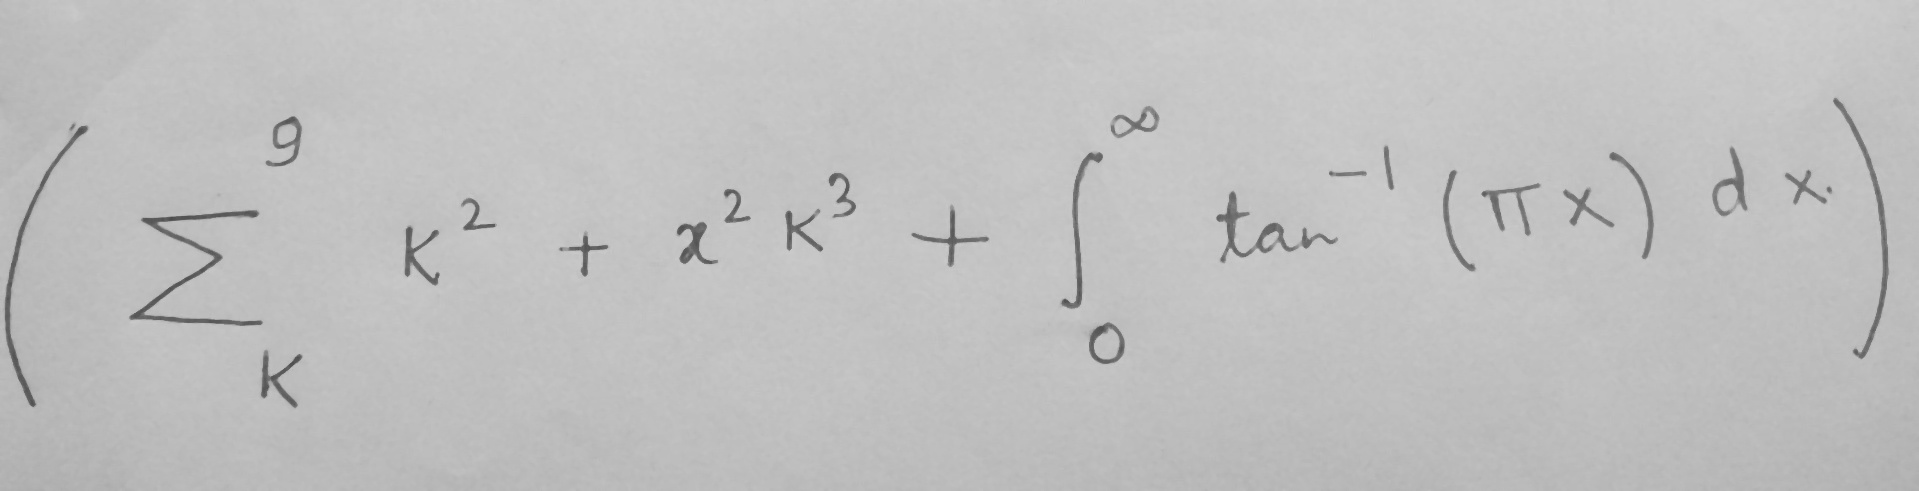 $\left( \sum_{K}^{9} K^2 + x^2 K^3 + \int_{0}^{\infty} \tan^{-1} (\pi x) \, dx \right)$